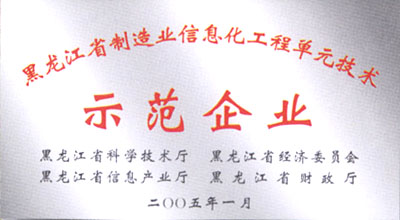 黑龙江省制造业信息化工程单元技术
示范企业
黑龙江省科学技术厅 黑龙江省经济委员会
黑龙江省信息产业厅 黑龙江省财政厅
二〇〇五年一月